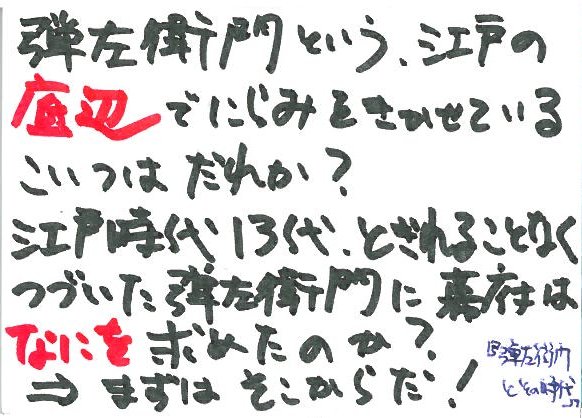 弾左衛門という、江戸の
底辺でにらみをきかせている
こいつはだれか？
江戸時代13代、とぎれることなく
つづいた弾左衛門に幕府は
なにを求めたのか？
⇒まずはそこからだ！
『弾左衛門
とその時代』